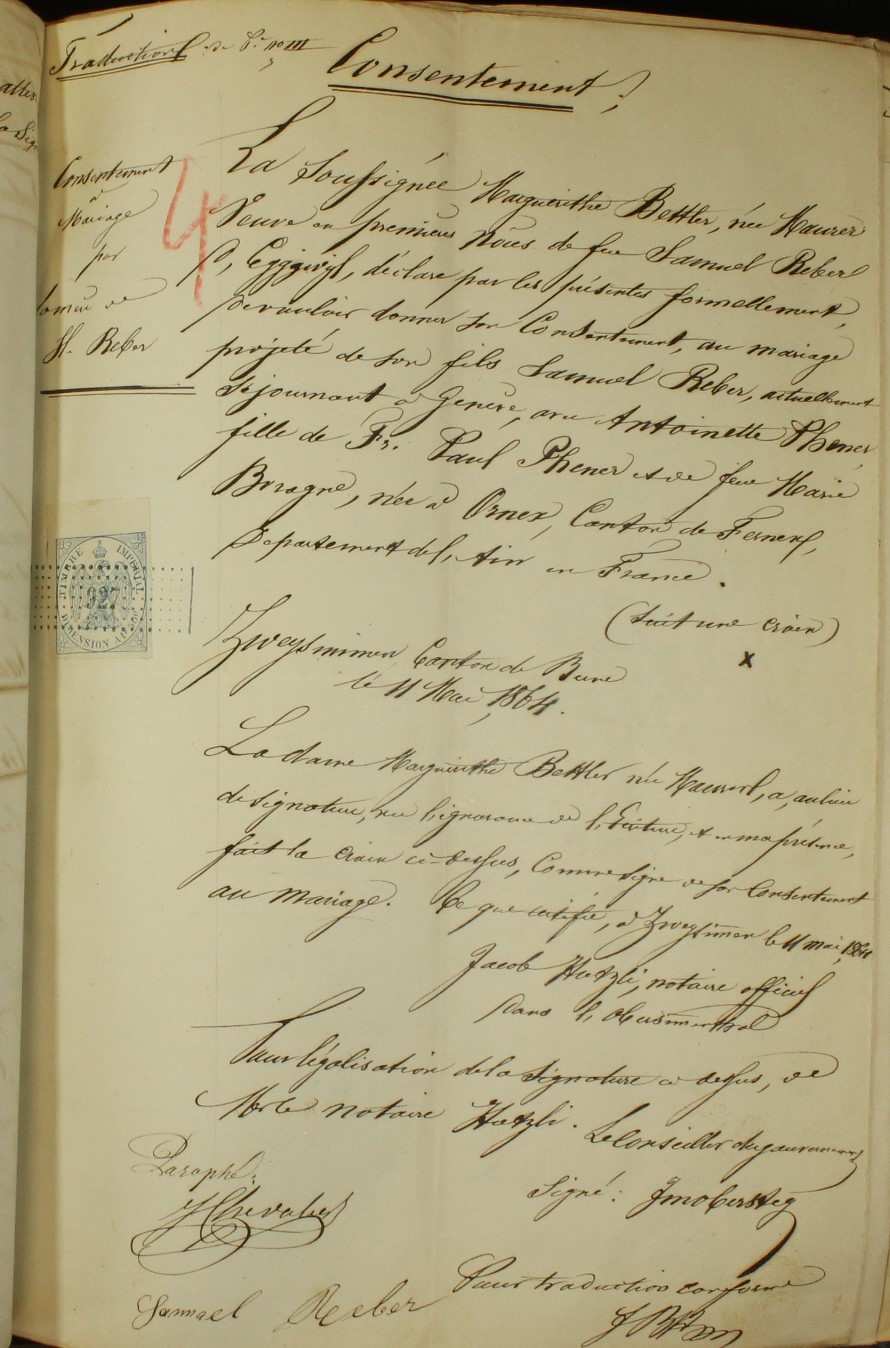 Traduction de No III
Consentement
Consentement
à
Mariage
par
la mère de
Sl. Reber
4
La Soussignée Marguerithe Bettler, née Maurer
Veuve en premières Nôces de feu Samuel Reber
déclare par les présentes formellement,
de vouloir donner son Consentement, au mariage
projeté de son fils Samuel Reber, actuellement
Séjournant à Genève, avec Antoinette Phener,
fille de Fr. Paul Phener et de feue Marie
née à Ornex, Canton de Ferney,
Département de l'Ain en France.
TIMBRE IMPERIAL
927
DIMENSION
(Suit une croix)
x
Zweysimmen Canton de Berne
le 11 Mai 1864.
La dame Marguerithe Bettler née Maurer, a, au lieu
de signature, vu l'ignorance de l'Ecriture, et en ma présence,
fait la croix ci-dessus, Comme signe de son Consentement
au mariage. Ce que certifie, à Zweysimmen le 11 mai 1864
Jacob Hutzli, notaire officiel
dans l'Obersimmenthal
Pour légalisation de la Signature ci dessus, de
Mr le notaire Hutzli.
Le Conseiller du gouvernement
Signé: Imobersteg
Paraphé:
JChevalier
Samuel Reber
Pour traduction conforme